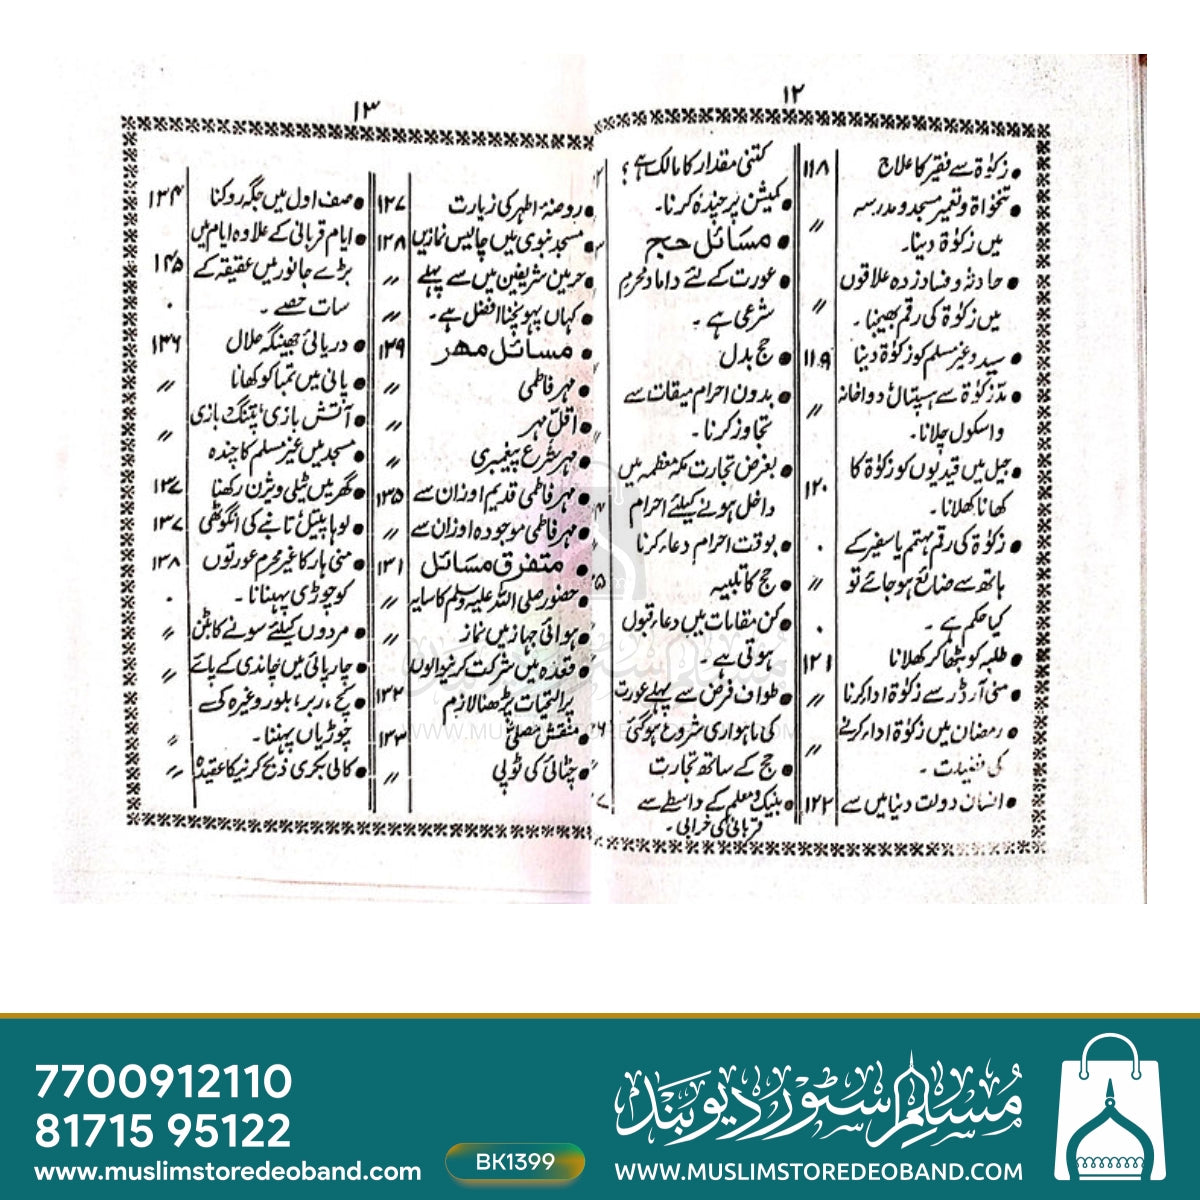 ۱۲
زکوٰۃ سے فقیر کا علاج ۱۱۸
تنخواہ و تعمیر مسجد و مدرسہ
میں زکوٰۃ دینا۔ 〃
حادثہ و فساد زدہ علاقوں
میں زکوٰۃ کی رقم بھیجنا۔ 〃
سید و غیر مسلم کو زکوٰۃ دینا ۱۱۹
مدّ زکوٰۃ سے ہسپتال دواخانہ
و اسکول چلانا۔ 〃
جیل میں قیدیوں کو زکوٰۃ کا
کھانا کھلانا۔ ۱۲۰
زکوٰۃ کی رقم مہتمم یا سفیر کے
ہاتھ سے ضائع ہو جائے تو 〃
کیا حکم ہے۔
طلبہ کو بٹھا کر کھلانا ۱۲۱
منی آرڈر سے زکوٰۃ ادا کرنا 〃
رمضان میں زکوٰۃ ادا کرنے
کی فضیلت۔ 〃
انسان دولت دنیا میں سے ۱۲۲
کتنی مقدار کا مالک ہے؟
کمیشن پر چندہ کرنا۔
مسائل حج
عورت کے لئے داماد محرم
شرعی ہے۔
حج بدل
بدون احرام میقات سے
تجاوز کرنا۔
بغرض تجارت مکہ معظمہ میں
داخل ہونے کیلئے احرام
بوقت احرام دعاء کرنا
حج کا تلبیہ
کن مقامات میں دعاء قبول
ہوتی ہے۔
طواف فرض سے پہلے عورت
کی ماہواری شروع ہو گئی
حج کے ساتھ تجارت
بینک و معلم کے واسطے سے
قربانی کی خرابی۔
۱۳
روضۂ اطہر کی زیارت ۱۲۷
مسجد نبوی میں چالیس نمازیں ۱۲۸
حرمین شریفین میں سے پہلے 〃
کہاں پہونچنا افضل ہے۔ 〃
مسائل مہر ۱۲۹
مہر فاطمی 〃
اقل مہر 〃
مہر شرع پیغمبری 〃
مہر فاطمی قدیم اوزان سے ۱۳۵
مہر فاطمی موجودہ اوزان سے 〃
متفرق مسائل ۱۳۱
حضور صلی اللہ علیہ وسلم کا سایہ 〃
ہوائی جہاز میں نماز 〃
قعدہ میں شرکت کرنیوالوں
پر التحیات پڑھنا لازم ۱۳۲
منقش مصلیٰ ۱۳۳
چٹائی کی ٹوپی 〃
صف اول میں جگہ روکنا ۱۳۴
ایام قربانی کے علاوہ ایام میں
بڑے جانور میں عقیقہ کے ۱۳۵
سات حصے۔
دریائی جھینگہ حلال ۱۳۶
پانی میں تمباکو کھانا 〃
آتش بازی، پتنگ بازی
مسجد میں غیر مسلم کا چندہ 〃
گھر میں ٹیلی ویژن رکھنا ۱۳۷
لوہا پیتل تانبے کی انگوٹھی ۱۳۷
منی ہار کا غیر محرم عورتوں ۱۳۸
کو چوڑی پہنانا۔
مردوں کیلئے سونے کا بٹن 〃
چارپائی میں چاندی کے پائے 〃
کچ، ربر، بلور وغیرہ کی
چوڑیاں پہننا۔ 〃
کالی بکری ذبح کرنیکا عقیدہ 〃
مسلم سٹور دیوبند
WWW.MUSLIMSTOREDEOBAND.COM
7700912110
81715 95122
www.muslimstoredeoband.com
BK1399
مسلم سٹور دیوبند
WWW.MUSLIMSTOREDEOBAND.COM